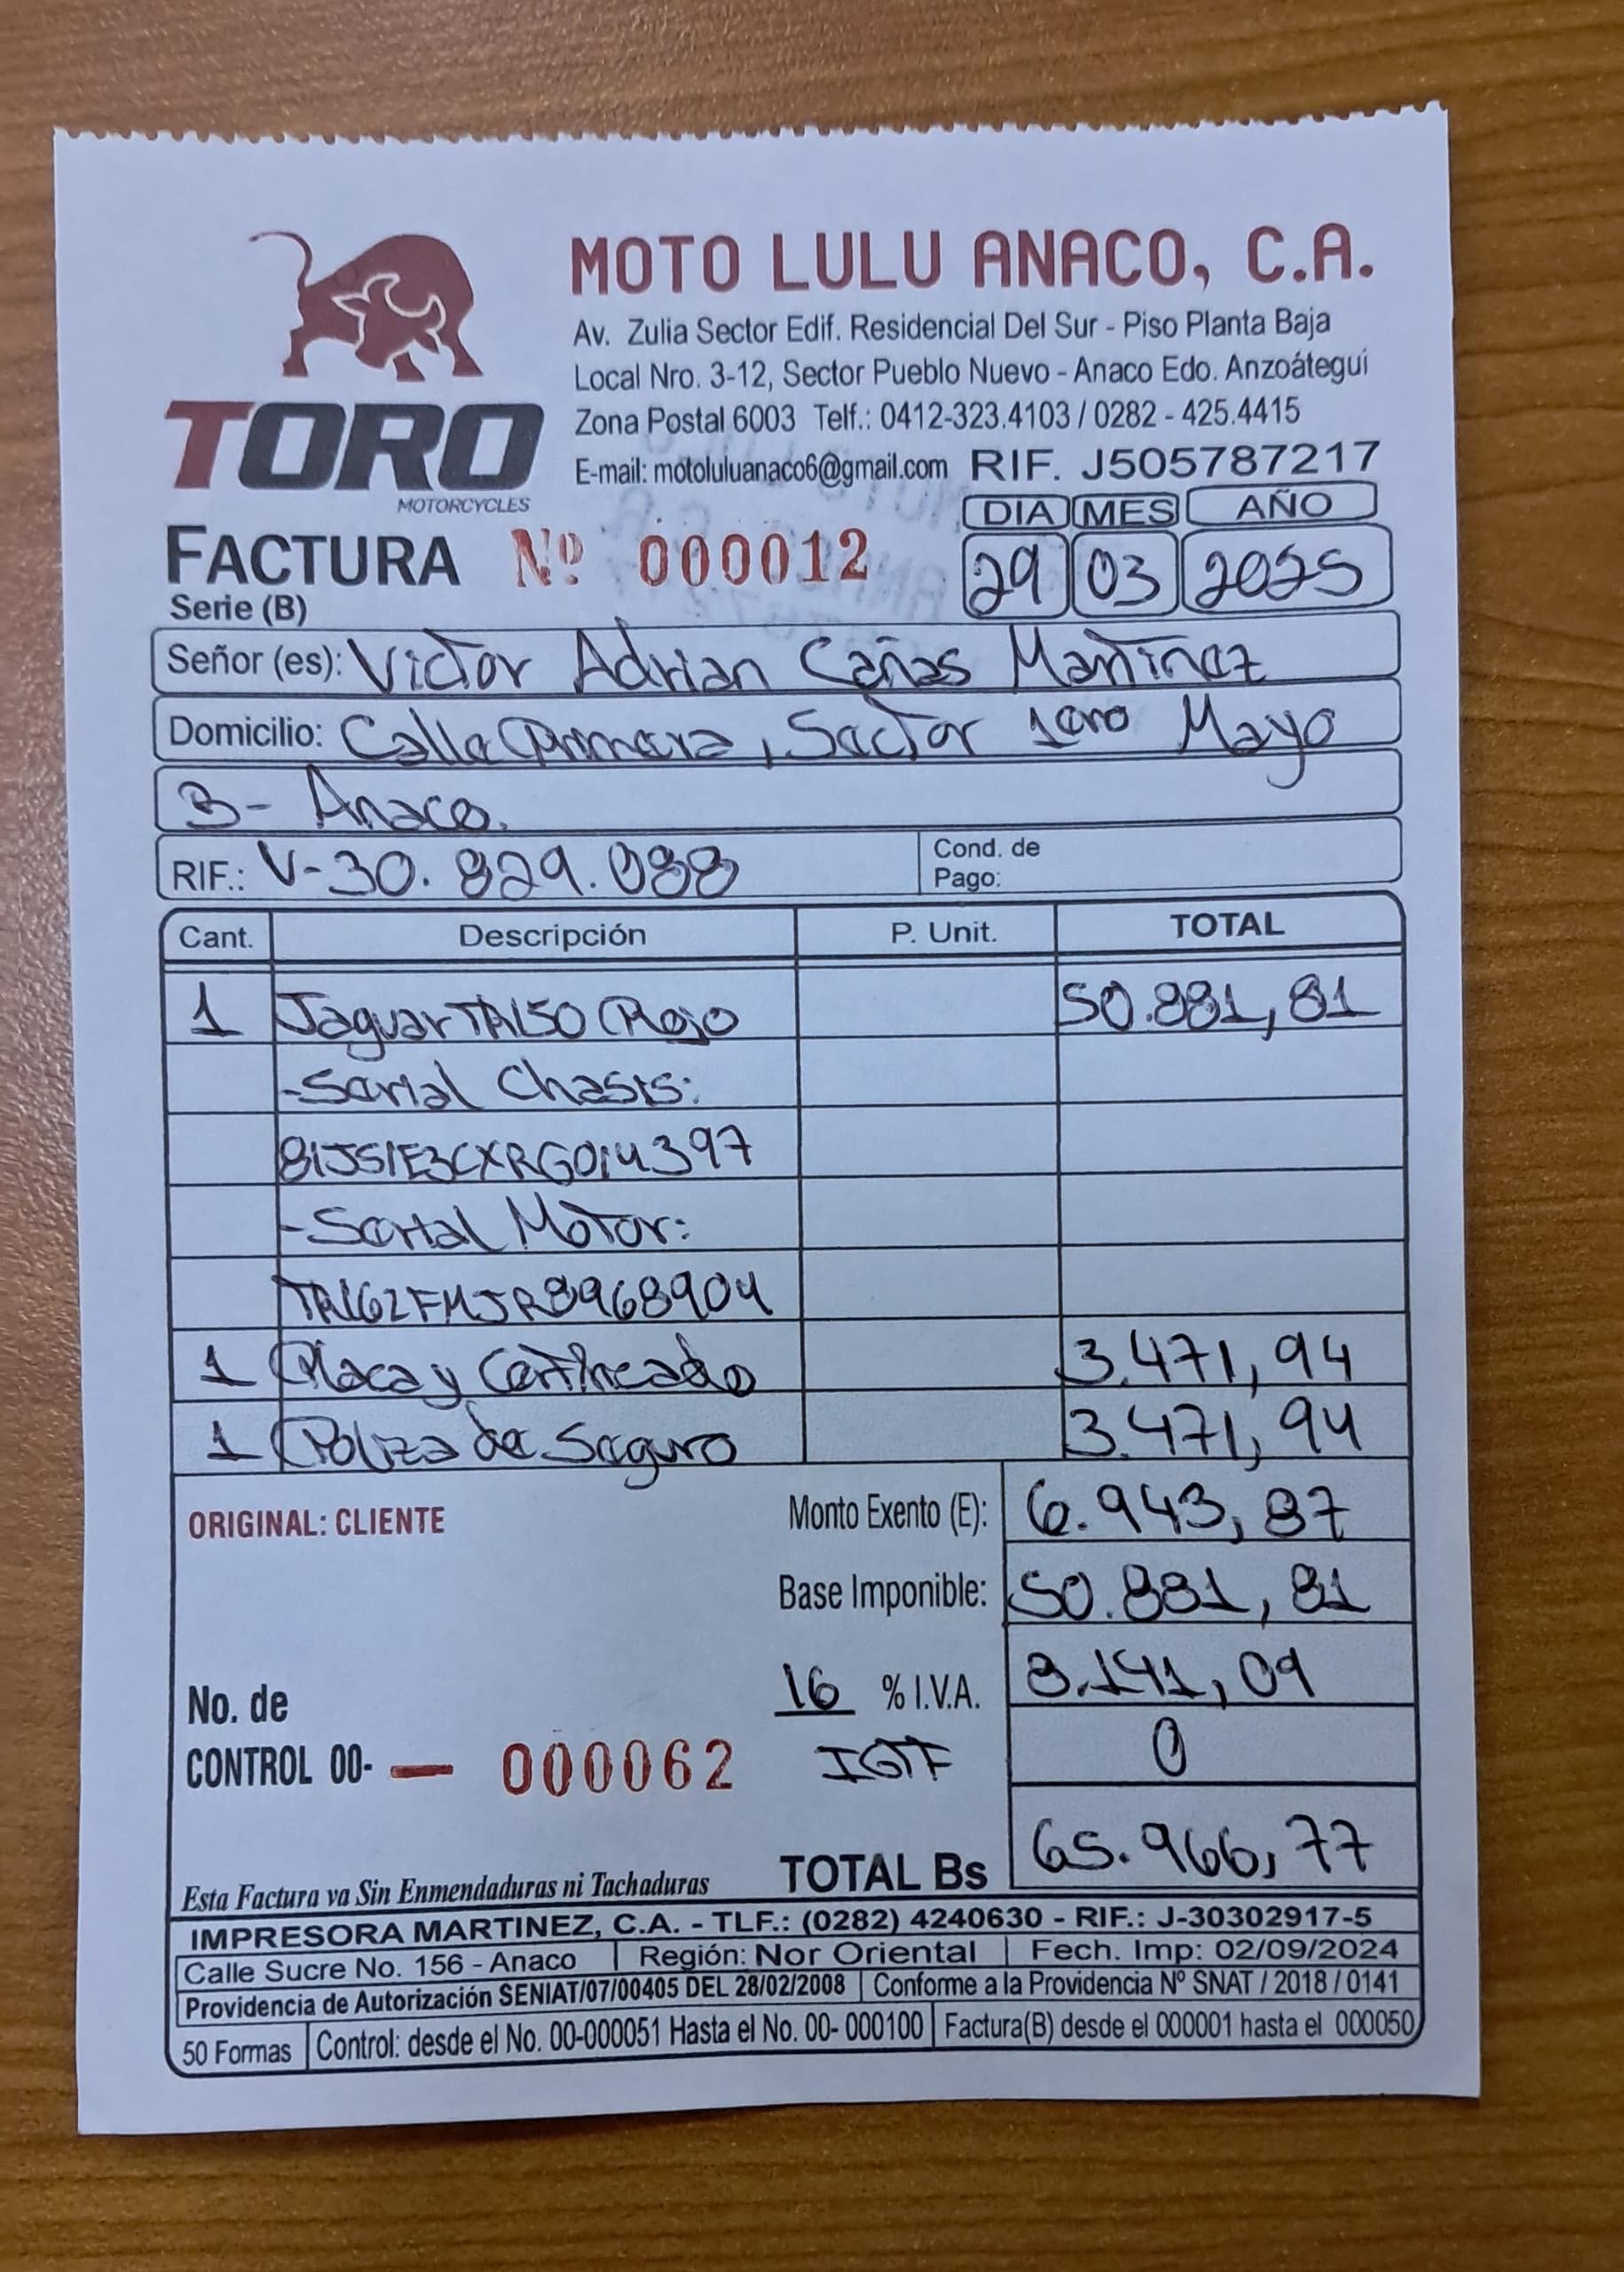 TORO
MOTORCYCLES
MOTO LULU ANACO, C.A.
Av. Zulia Sector Edif. Residencial Del Sur - Piso Planta Baja
Local Nro. 3-12, Sector Pueblo Nuevo - Anaco Edo. Anzoátegui
Zona Postal 6003 Telf.: 0412-323.4103 / 0282 - 425.4415
E-mail: motoluluanaco6@gmail.com RIF. J505787217
DIA MES AÑO
FACTURA Nº 000012 29 03 2025
Serie (B)
Señor (es): Victor Adrian Cañas Martinez
Domicilio: Calle Primera, Sector 1ero Mayo
3- Anaco.
RIF.: V-30.829.088 Cond. de Pago:
Cant. Descripción P. Unit. TOTAL
1 Jaguar TR150 Rojo 50.881,81
-Serial Chasis:
81JS1E3CXRG014397
-Serial Motor:
TR162FMJR8968904
1 Placa y Certificado 3.471,94
1 Poliza de Seguro 3.471,94
ORIGINAL: CLIENTE
Monto Exento (E): 6.943,87
Base Imponible: 50.881,81
16 % I.V.A. 8.141,09
No. de
CONTROL 00- — 000062
IGTF 0
TOTAL Bs 65.966,77
Esta Factura va Sin Enmendaduras ni Tachaduras
IMPRESORA MARTINEZ, C.A. - TLF.: (0282) 4240630 - RIF.: J-30302917-5
Calle Sucre No. 156 - Anaco Región: Nor Oriental Fech. Imp: 02/09/2024
Providencia de Autorización SENIAT/07/00405 DEL 28/02/2008 Conforme a la Providencia Nº SNAT / 2018 / 0141
50 Formas Control: desde el No. 00-000051 Hasta el No. 00- 000100 Factura(B) desde el 000001 hasta el 000050